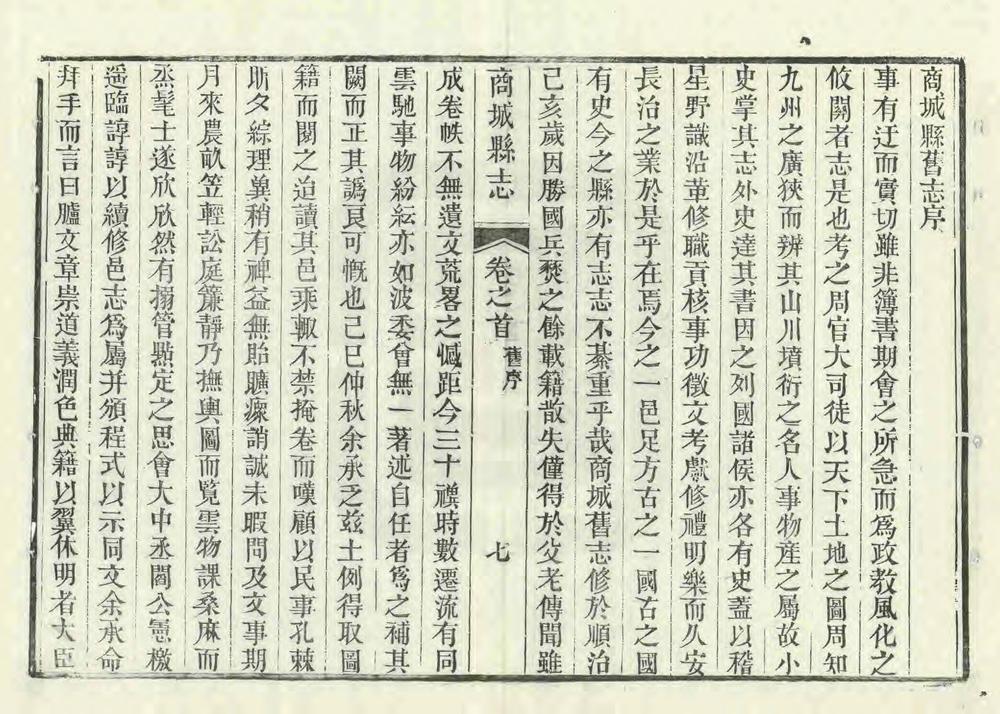 商城縣舊志序
事有迂而實切雖非簿書期會之所急而爲政教風化之
攸關者志是也考之周官大司徒以天下土地之圖周知
九州之廣狹而辨其山川墳衍之名人事物産之屬故小
史掌其志外史達其書因之列國諸侯亦各有史蓋以稽
星野識沿革修職貢核事功徵文考獻修禮明樂而久安
長治之業於是乎在焉今之一邑足方古之一國古之國
有史今之縣亦有志志不綦重乎哉商城舊志修於順治
己亥歲因勝國兵燹之餘載籍散失僅得於父老傳聞雖
商城縣志
卷之首
舊序
七
成卷帙不無遺文荒畧之憾距今三十禩時數遷流有同
雲馳事物紛紜亦如波委會無一著述自任者爲之補其
闕而正其譌良可慨也己巳仲秋余承乏茲土例得取圖
籍而閱之迨讀其邑乘輙不禁掩卷而嘆顧以民事孔棘
夙夕綜理冀稍有裨益無貽曠瘝誚誠未暇問及文事期
月來農畝笠輕訟庭簾靜乃撫輿圖而覽雲物課桑麻而
烝髦士遂欣欣然有搦管點定之思會大中丞閻公憲檄
遥臨諄諄以續修邑志爲屬并頒程式以示同文余承命
拜手而言曰臚文章崇道義潤色典籍以翼休明者大臣